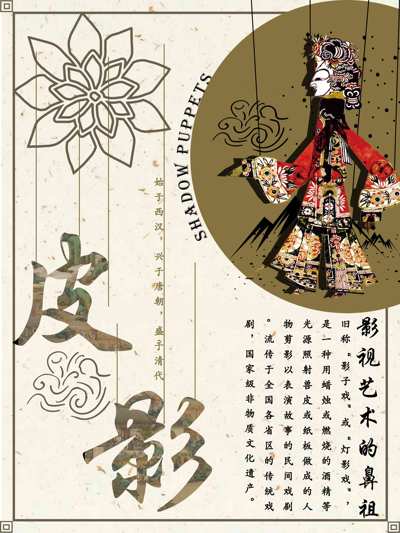 SHADOW PUPPETS
皮影
始于西汉，兴于唐朝，盛于清代
影视艺术的鼻祖
旧称“影子戏”或“灯影戏”，
是一种用蜡烛或燃烧的酒精等
光源照射兽皮或纸板做成的人
物剪影以表演故事的民间戏剧
。流传于全国各省区的传统戏
剧，国家级非物质文化遗产。